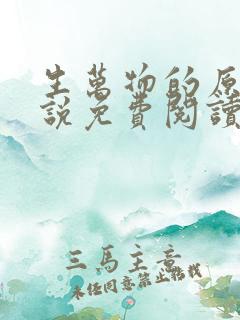 生萬物的原
說免費閱讀
三馬主意
未經同意禁止轉載